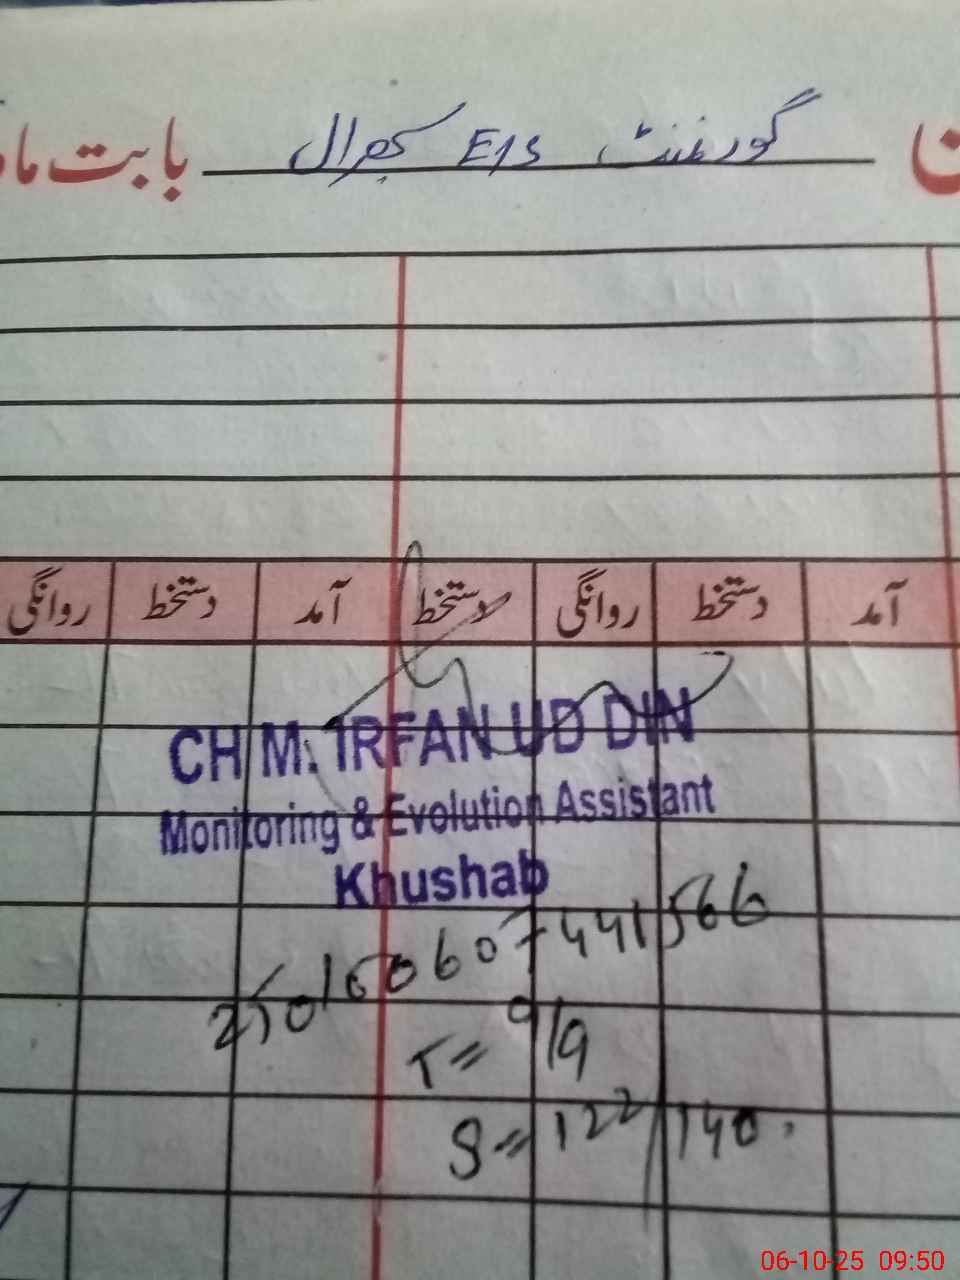 گورنمنٹ E/S کجرال بابت ماہ
آمد دستخط روانگی دستخط آمد دستخط روانگی
CH M. IRFAN UD DIN
Monitoring & Evolution Assistant
Khushab
T = 9/9
S = 122/140.
06-10-25 09:50